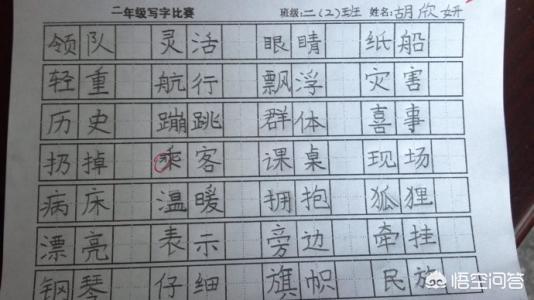 二年级写字比赛 班级:二(2)班 姓名:胡欣妍
领队 灵活 眼睛 纸船
轻重 航行 飘浮 灾害
历史 蹦跳 群体 喜事
扔掉 乘客 课桌 现场
病床 温暖 拥抱 狐狸
漂亮 表示 旁边 牵挂
钢琴 仔细 旗帜 民族
悟空问答